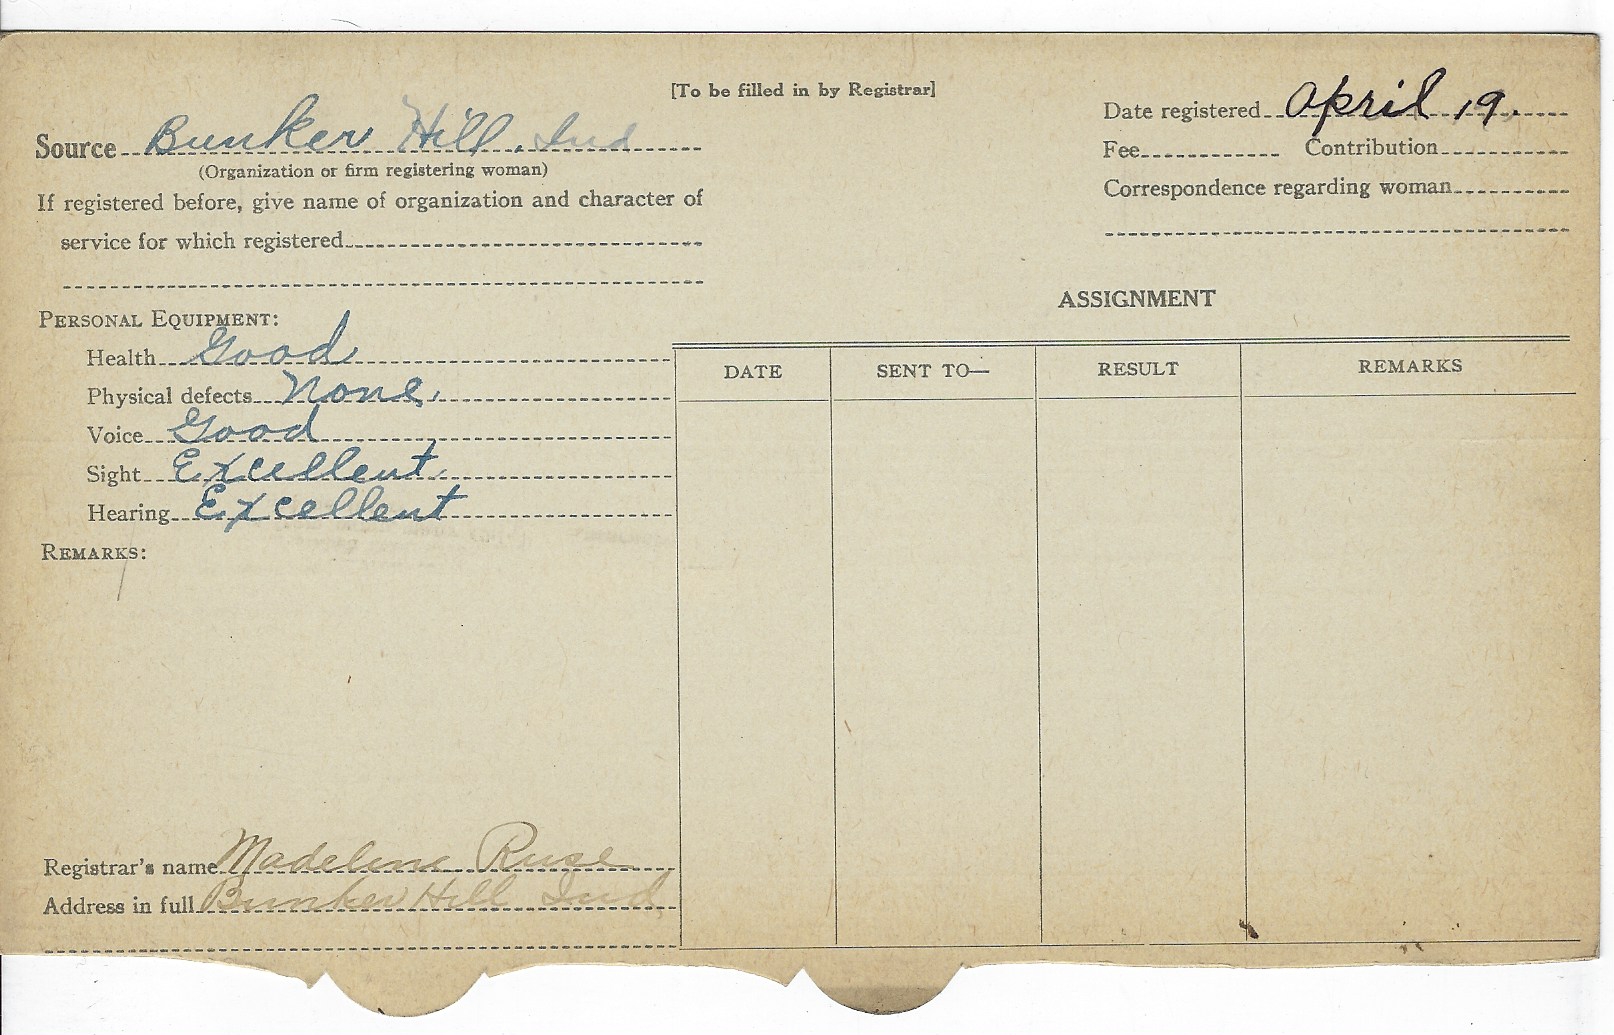 [To be filled in by Registrar]
Date registered April 19.
Source Bunker Hill. Ind
(Organization or firm registering woman)
Fee Contribution
If registered before, give name of organization and character of
service for which registered
Correspondence regarding woman
PERSONAL EQUIPMENT:
Health Good
Physical defects None.
Voice Good
Sight Excellent
Hearing Excellent
REMARKS:
Registrar's name Madelene Ruse
Address in full Bunker Hill Ind
ASSIGNMENT
DATE SENT TO— RESULT REMARKS